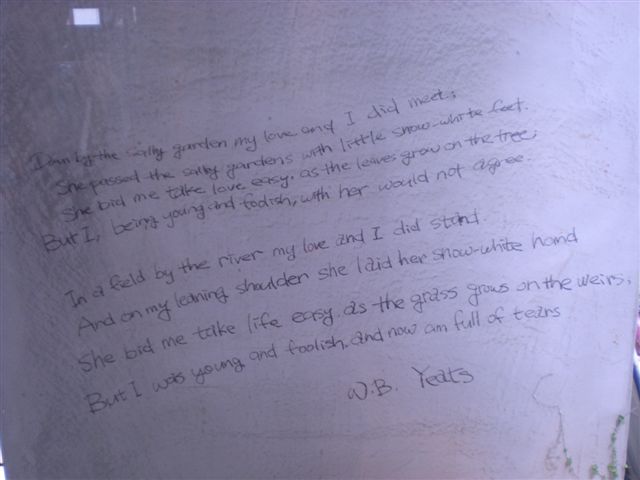 Down by the sally garden my love and I did meet;
She passed the sally gardens with little snow-white feet.
She bid me take love easy. as the leaves grow on the tree;
But I, being young and foolish, with her would not agree.
In a field by the river my love and I did stand.
And on my leaning shoulder she laid her snow-white hand
She bid me take life easy. as the grass grows on the weirs;
But I was young and foolish. and now am full of tears
W.B. Yeats